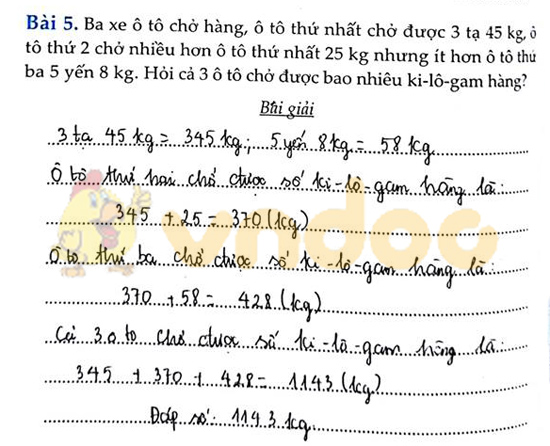 Bài 5. Ba xe ô tô chở hàng, ô tô thứ nhất chở được 3 tạ 45 kg, ô
tô thứ 2 chở nhiều hơn ô tô thứ nhất 25 kg nhưng ít hơn ô tô thứ
ba 5 yến 8 kg. Hỏi cả 3 ô tô chở được bao nhiêu ki-lô-gam hàng?
Bài giải
3 tạ 45 kg = 345 kg; 5 yến 8 kg = 58 kg
Ô tô thứ hai chở được số ki-lô-gam hàng là:
345 + 25 = 370 (kg)
Ô tô thứ ba chở được số ki-lô-gam hàng là:
370 + 58 = 428 (kg)
Cả 3 ô tô chở được số ki-lô-gam hàng là:
345 + 370 + 428 = 1143 (kg)
Đáp số: 1143 kg
vndoc